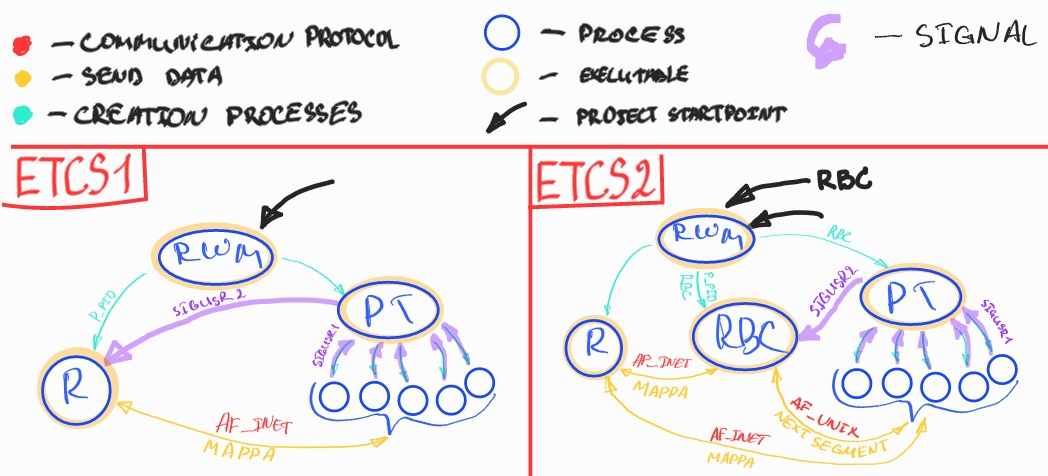 — COMMUNICATION PROTOCOL
— SEND DATA
— CREATION PROCESSES
— PROCESS
— EXECUTABLE
— PROJECT STARTPOINT
— SIGNAL
ETCS1
RWM
P_PID
SIGUSR2
PT
SIGUSR1
R
AF_INET
MAPPA
ETCS2
RBC
RWM
RBC
P_PID
RBC
SIGUSR2
PT
SIGUSR1
R
RBC
AF_INET
MAPPA
AF_UNIX
NEXT SEGMENT
AF_INET
MAPPA